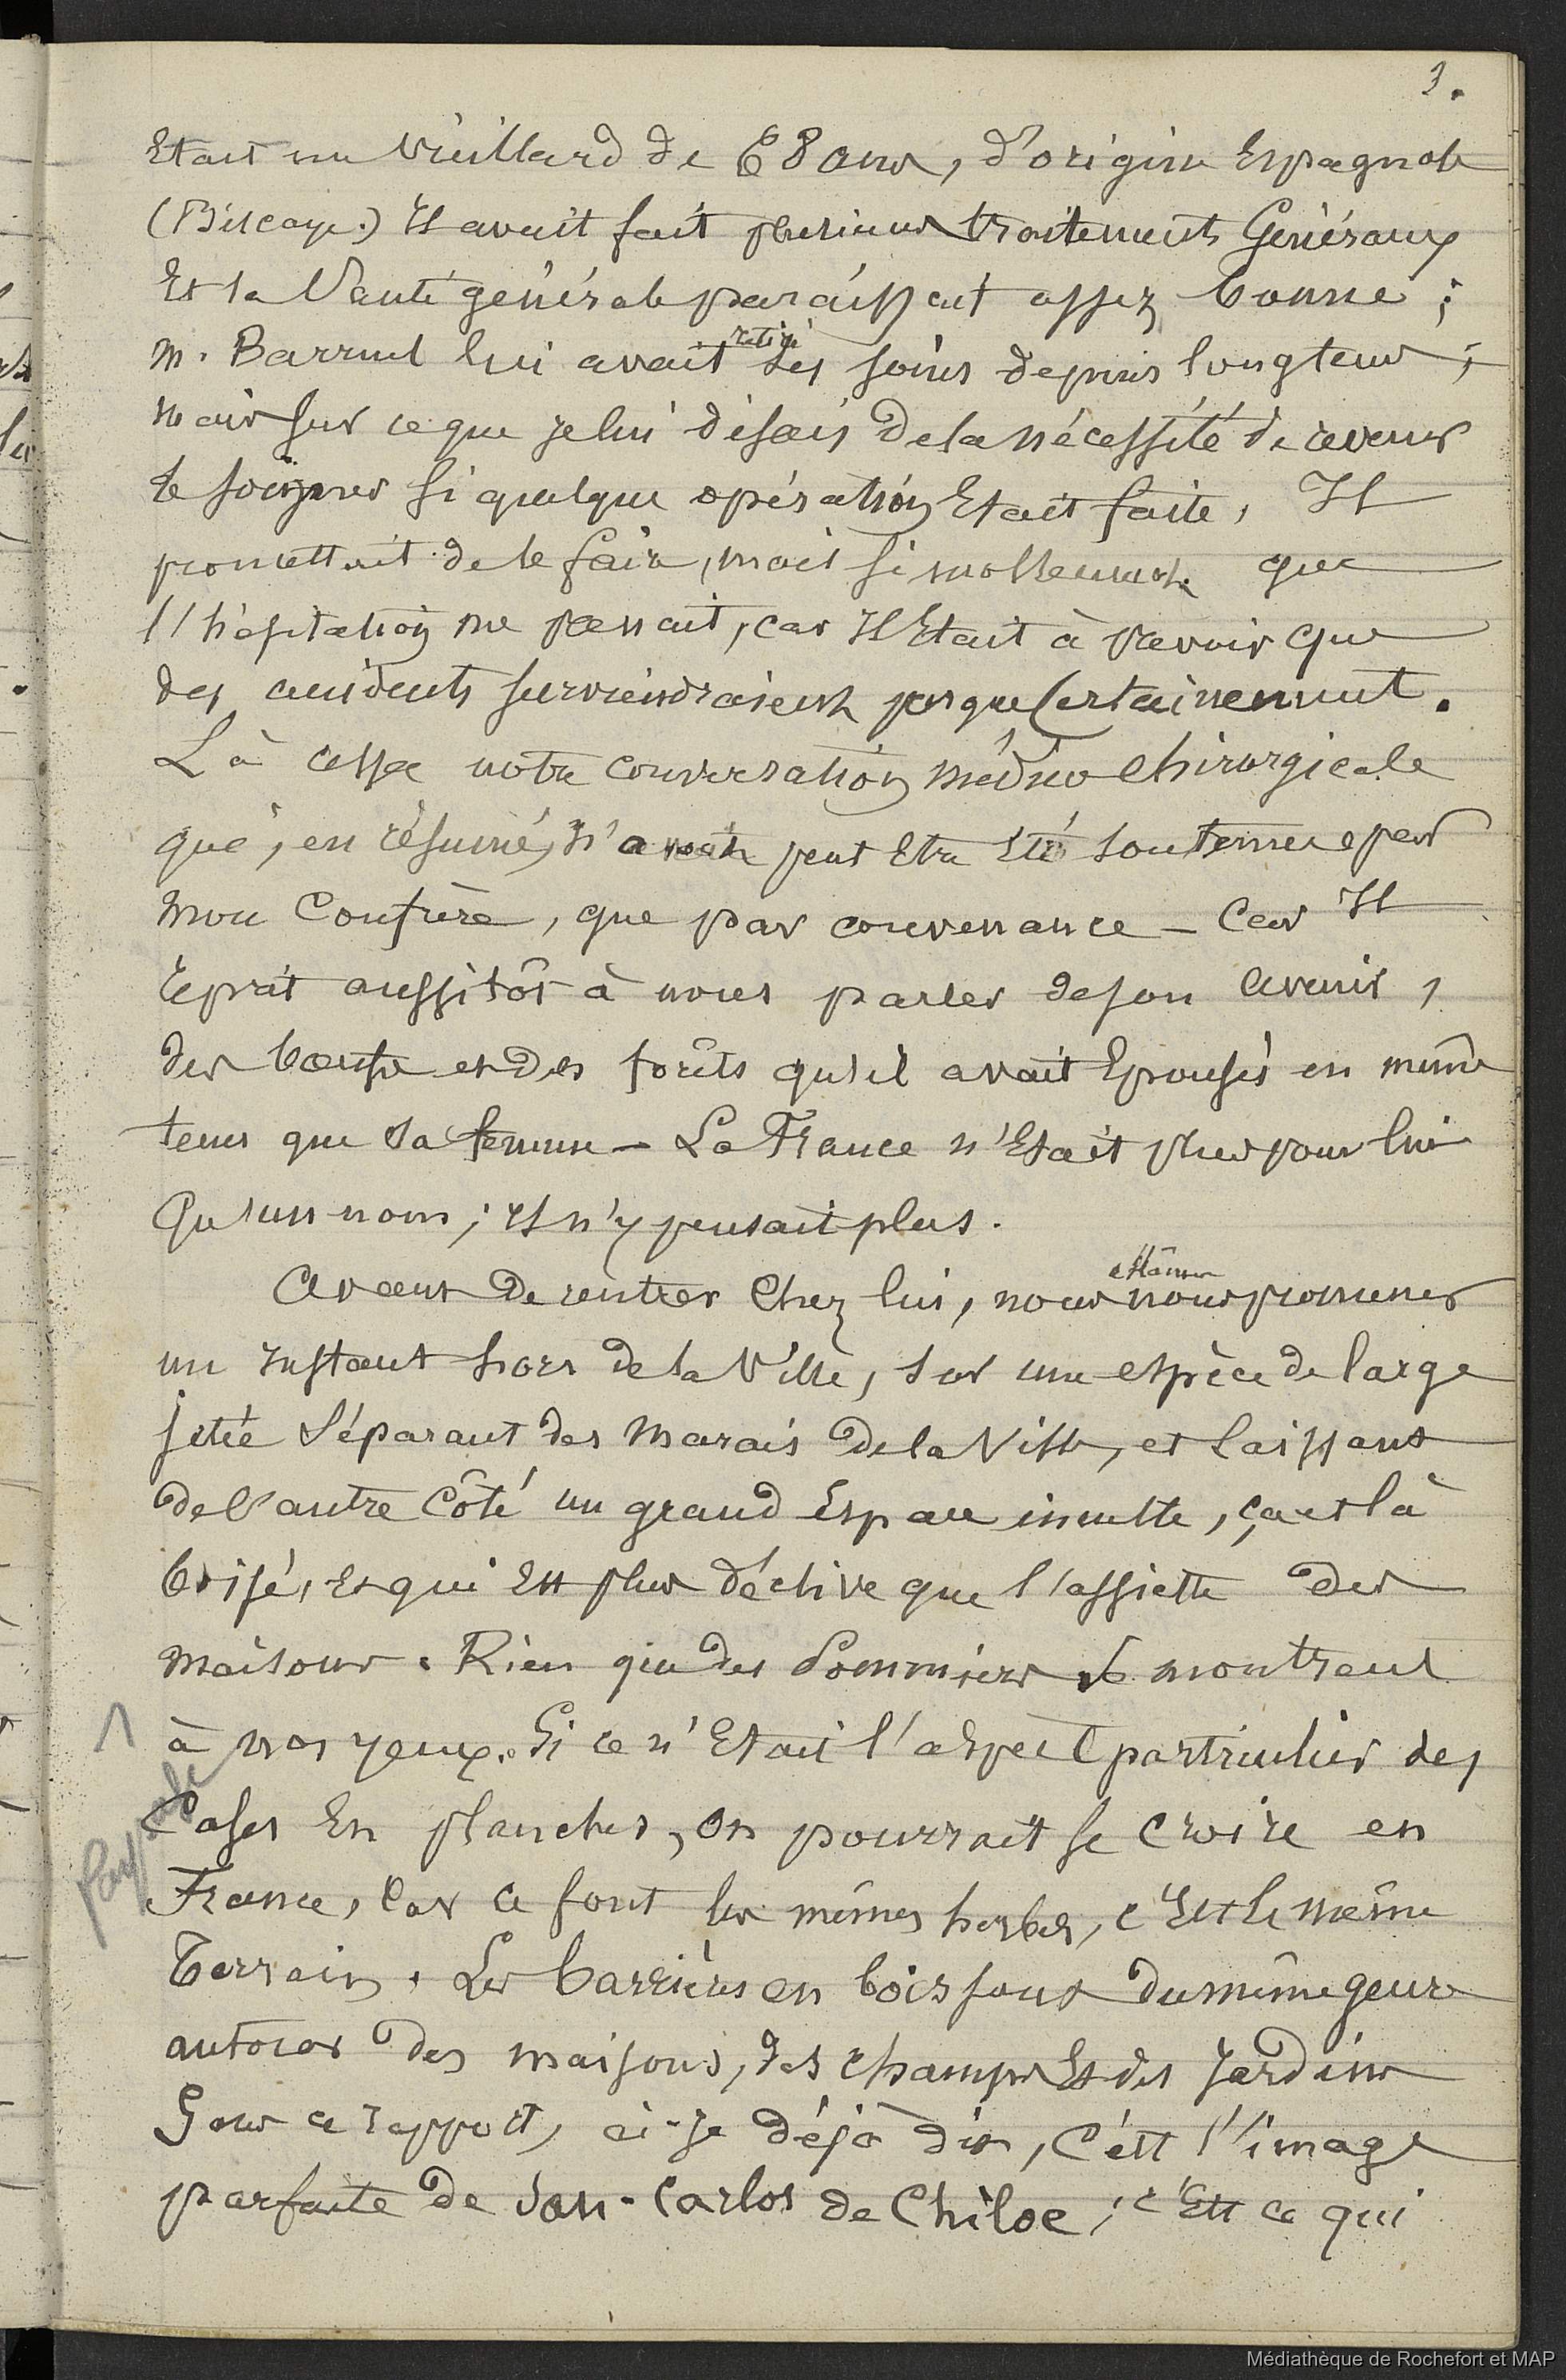 3.
Etait un vieillard de 68 ans, d'origine Espagnole
(Biscaye.) Il avait fait plusieurs traitements Généraux
Et sa Santé générale paraissait assez bonne ;
M. Barruel lui avait retiré ses soins depuis longtems ;
Mais sur ce que je lui disais de la nécessité de revenir
le soigner si quelque opération Etait faite, Il
promettait de le faire, mais si mollement que
l'hésitation me peinait, car Il Etait à prévoir que
des accidents surviendraient presque Certainement.
Là cessa notre conversation médico Chirurgicale
qui, en résumé, n'avait peut Etre Eté soutenue par
mon Confrère, que par convenance — Car Il
reprit aussitôt à nous parler de son avenir,
des bœufs et des forêts qu'il avait Epousés en même
tems que sa femme — La France n'Etait plus pour lui
Qu'un nom ; Il n'y pensait plus.
Avant de rentrer Chez lui, nous allâmes nous promener
un Instant hors de la Ville, sur une espèce de large
jetée Séparant des Marais de la Ville, et laissant
de l'autre Côté un grand Espace inculte, çà et là
boisé, Et qui Est plus déclive que l'assiette des
maisons. Rien que des Pommiers se montrent
à nos yeux. Si ce n'Etait l'aspect particulier des
Cases En planches, on pourrait se croire en
France, Car ce sont les mêmes herbes, c'Est le même
Terrain. Les barrières en bois sont du même genre
autour des maisons, des champs Et des Jardins
Sous ce rapport, ai-je déjà dit, C'est l'image
parfaite de San-Carlos de Chiloe ; c'Est ce qui
Médiathèque de Rochefort et MAP